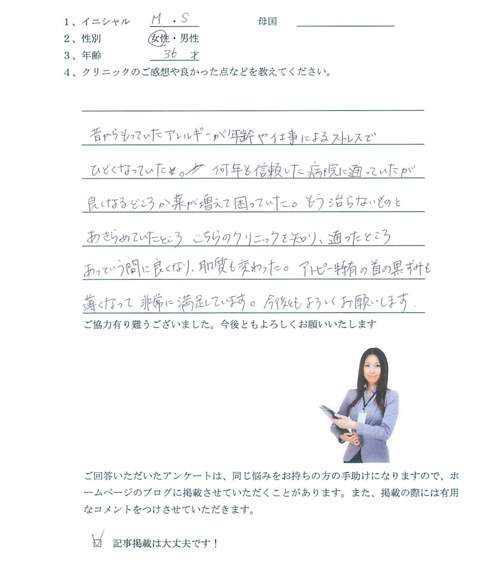 1、イニシャル M . S 母国
2、性別 女性・男性
3、年齢 36 才
4、クリニックのご感想や良かった点などを教えてください。
昔からもっていたアレルギーが年齢や仕事によるストレスで
ひどくなっていた。何年も信頼した病院に通っていたが
良くなるどころか薬が増えて困っていた。もう治らないものと
あきらめていたところ こちらのクリニックを知り、通ったところ
あっという間に良くなり、肌質も変わった。アトピー特有の首の黒ずみも
薄くなって 非常に満足しています。今後ともよろしくお願いします.
ご協力有り難うございました。今後ともよろしくお願いいたします
ご回答いただいたアンケートは、同じ悩みをお持ちの方の手助けになりますので、ホ
ームページのブログに掲載させていただくことがあります。また、掲載の際には有用
なコメントをつけさせていただきます。
記事掲載は大丈夫です！